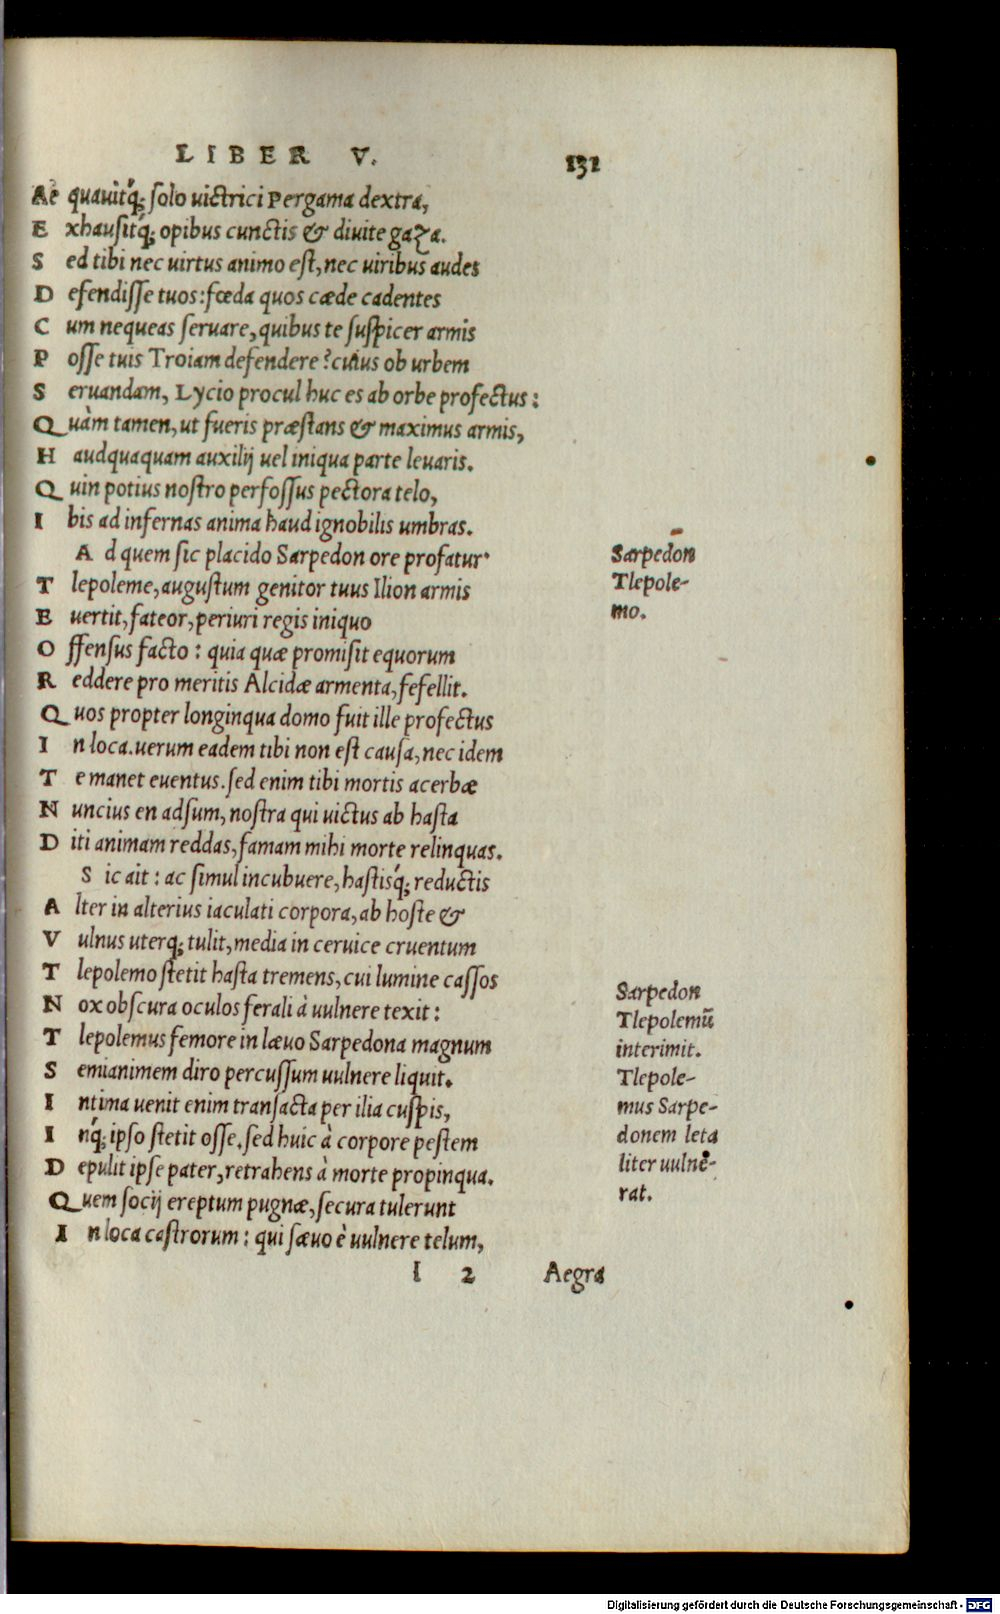 LIBER V. 131
Aequavitq́; solo uictrici Pergama dextra,
Exhausitq́; opibus cunctis & diuite gaza.
Sed tibi nec uirtus animo est, nec uiribus audes
Defendisse tuos: fœda quos cæde cadentes
Cum nequeas seruare, quibus te suspicer armis
Posse tuis Troiam defendere? cuius ob urbem
Seruandam, Lycio procul huc es ab orbe profectus:
Quàm tamen, ut fueris præstans & maximus armis,
Haudquaquam auxilij uel iniqua parte leuaris.
Quin potius nostro perfossus pectora telo,
Ibis ad infernas anima haud ignobilis umbras.
Ad quem sic placido Sarpedon ore profatur.
Tlepoleme, augustum genitor tuus Ilion armis
Euertit, fateor, periuri regis iniquo
Offensus facto: quia quæ promisit equorum
Reddere pro meritis Alcidæ armenta, fefellit.
Quos propter longinqua domo fuit ille profectus
In loca. uerum eadem tibi non est causa, nec idem
Te manet euentus. sed enim tibi mortis acerbæ
Nuncius en adsum, nostra qui uictus ab hasta
Diti animam reddas, famam mihi morte relinquas.
Sic ait: ac simul incubuere, hastisq́; reductis
Alter in alterius iaculati corpora, ab hoste &
Vulnus uterq; tulit, media in ceruice cruentum
Tlepolemo stetit hasta tremens, cui lumine cassos
Nox obscura oculos ferali à uulnere texit:
Tlepolemus femore in læuo Sarpedona magnum
Semianimem diro percussum uulnere liquit.
Intima uenit enim transacta per ilia cuspis,
Inq́; ipso stetit osse. sed huic à corpore pestem
Depulit ipse pater, retrahens à morte propinqua.
Quem socij ereptum pugnæ, secura tulerunt
In loca castrorum: qui sæuo è uulnere telum,
I 2 Aegra
Sarpedon
Tlepole-
mo.
Sarpedon
Tlepolemū
interimit.
Tlepole-
mus Sarpe-
donem leta
liter uulne-
rat.
Digitalisierung gefördert durch die Deutsche Forschungsgemeinschaft - DFG